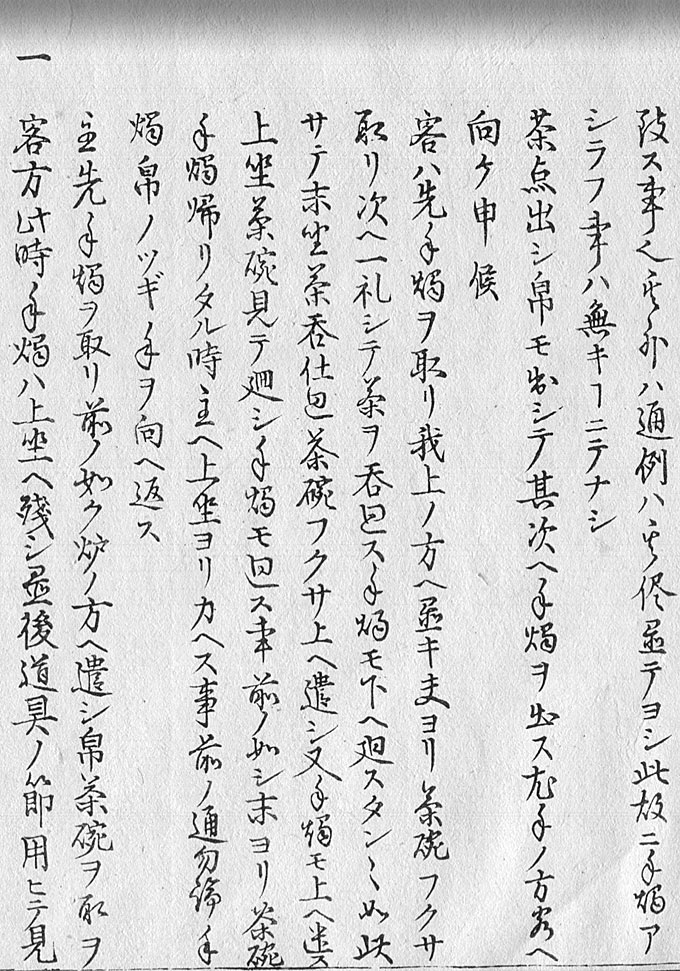 致ス事也其外ハ通例ハ其侭置テヨシ此故ニ手燭ア
シラフ事ハ無キヿニテナシ
茶点出シ帛モ出シテ其次ヘ手燭ヲ出ス尤手ノ方客ヘ
向ケ申候
客ハ先手燭ヲ取リ我上ノ方ヘ置キ夫ヨリ茶碗フクサ
取リ次ヘ一礼シテ茶ヲ呑回ス手燭モ下ヘ廻スタン〱如此
サテ末坐茶呑仕回茶碗フクサ上ヘ遣シ又手燭モ上ヘ送ス
上坐茶碗見テ廻シ手燭モ回ス事前ノ如シ末ヨリ茶碗
手燭帰リタル時主ヘ上坐ヨリカヘス事前ノ通勿論手
燭帛ノツギ手ヲ向ヘ返ス
主先手燭ヲ取リ前ノ如ク炉ノ方ヘ遣シ帛茶碗ヲ取ヲ
一 客方此時手燭ハ上坐ヘ残シ置後道具ノ節用ヒテ見